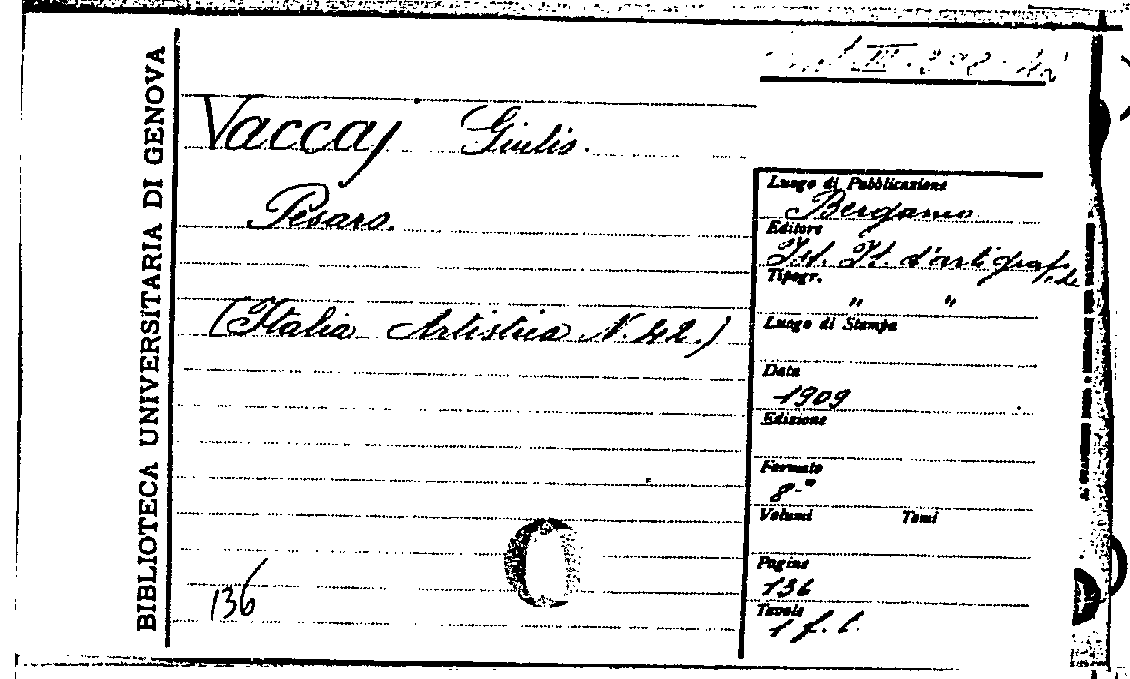 BIBLIOTECA UNIVERSITARIA DI GENOVA
III
Vaccaj Giulio.
Pesaro.
(Italia Artistica N. 42.)
136
Luogo di Pubblicazione
Bergamo
Editore
Ist. It. d'arti grafiche
Tipogr.
" "
Luogo di Stampa
Data
1909
Edizione
Formato
8-°
Volumi Tomi
Pagine
136
Tavole
1 f. t.